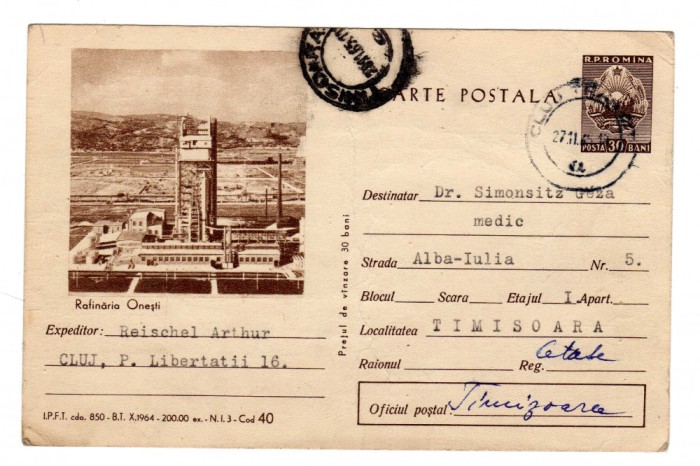 CARTE POSTALA
R.P.ROMINA
POSTA 30 BANI
CLUJ
27.11.
TIMISOARA
Rafinăria Onești
Expeditor: Reischel Arthur
CLUJ, P. Libertatii 16.
I.P.F.T. cda. 850 - B.T. X.1964 - 200.00 ex. - N.I. 3 - Cod 40
Prețul de vînzare 30 bani
Destinatar Dr. Simonsitz Geza
medic
Strada Alba-Iulia Nr. 5.
Blocul Scara Etajul I Apart.
Localitatea TIMISOARA
Raionul Reg.
Oficiul poștal: Timizoarea